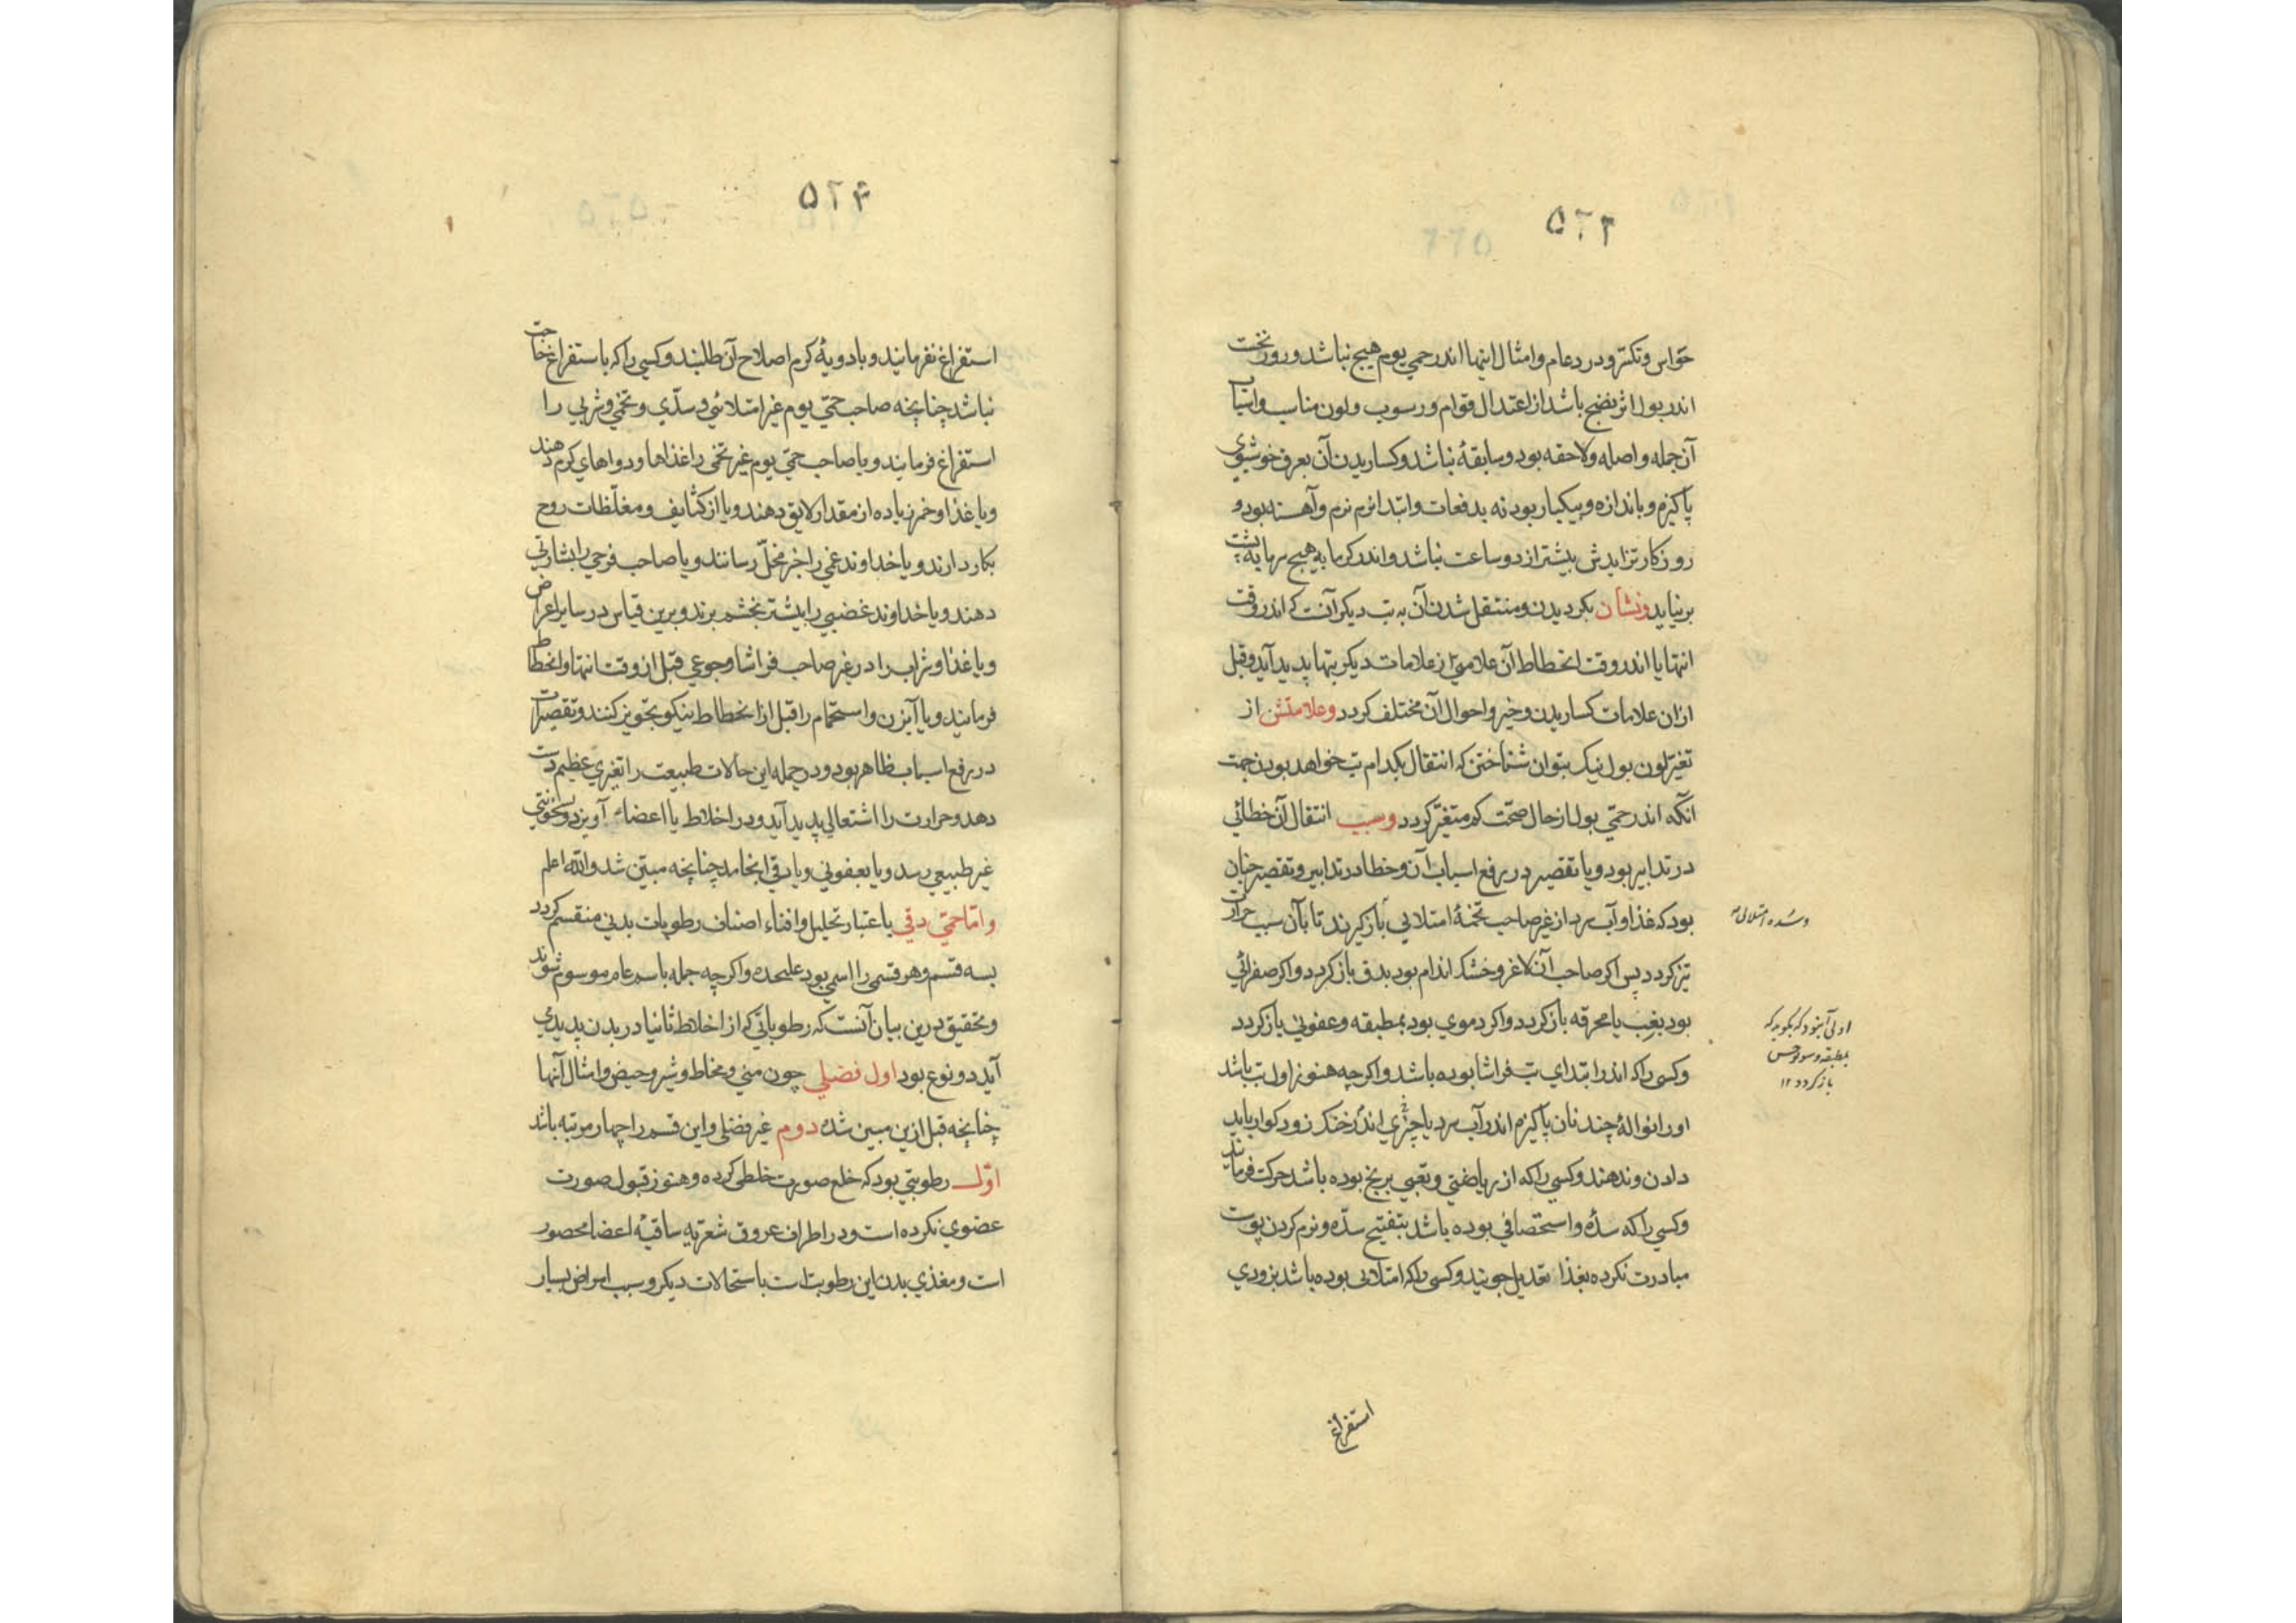 ۵۲۳
حواس و تکسّر و درد عام و امثال اینها اندر حمی یوم هیچ نباشد و روز نخست
اندر بول اثر نضج باشد از اعتدال قوام و رسوب و لون مناسب و اسباب
آن جمله واصله و لاحقه بود و سابقهٔ نباشد و کساریدن آن بعرق خوشبوی
پاکیزه و باندازه و بیکبار بود نه بدفعات و ابتدا نرم نرم و آهسته بود و
روزکار تزایدش بیشتر از دو ساعت نباشد و اندر کرمابه هیچ سرما به پشت
بر نیاید و نشان بکردیدن و منتقل شدن آن به تب دیکر آنست که اندر وقت
انتها یا اندر وقت انحطاط آن علامتی از علامات دیکر تبها پدید آید و قبل
از ان علامات کساریدن و خیر و احوال آن مختلف کردد و علامتش از
تغیّر لون بول نیک بتوان شناختن که انتقال بکدام تب خواهد بودن جهت
آنکه اندر حمّی بول از حال صحّت کم متغیّر کردد و سبب انتقال آن خطائی
در تدابیر بود و یا تقصیر در رفع اسباب آن و خطا در تدابیر و تقصیر چنان
بود که غذا و آب سرد از غیر صاحب تخمهٔ امتلائی باز کیرند تا بآن سبب حرارت
تیز کردد پس اکر صاحب آن لاغر و خشک اندام بود بدق باز کردد و اکر صفرائی
بود بغب یا محرقه باز کردد و اکر دموی بود بمطبقه و عفونی باز کردد
و کسی را که اندر ابتدای تب فراشا بوده باشد و اکرچه هنوز اول تب باشد
او را نوالهٔ چند نان پاکیزه اندر آب سرد یا چیزی اندر خنک زود کوار باید
دادن و ندهند و کسی را که از ریاضتی و تعبی برنج بوده باشد حرکت فرمایند
و کسی را که سدّه و استحصافی بوده باشد بتفتیح سدّه و نرم کردن پوست
مبادرت نکرده بغذا تعدیل جویند و کسی را که امتلائی بوده باشد بزودی
استفراغ
و سده امتلائی
اولی آن بود که بکوید که
بمطبقه و سونوخس
باز کردد ۱۲
۵۲۴
استفراغ نفرمایند و بادویهٔ کرم اصلاح آن طلبند و کسی را که باستفراغ حاجت
نباشد چنانچه صاحب حمّی یوم غیر امتلائی و سدّی و تخمی و شربی را
استفراغ فرمایند و یا صاحب حمّی یوم غیر تخمی را غذاها و دواهای کرم دهند
و یا غذا و خمر زیاده از مقدار لایق دهند و یا از کثایف و مغلّظات روح
بکار دارند و یا خداوند غمی را خبر مخلّ رسانند و یا صاحب فرحی را بشارتی
دهند و یا خداوند غضبی را بیشتر بخشم برند و برین قیاس در سایر اعراض
و یا غذا و شراب را در غیر صاحب فراشا و جوعی قبل از وقت انتها و انحطاط
فرمایند و یا آبزن و استحمام را قبل از انحطاط نیکو تجویز کنند و تقصیرات
در رفع اسباب ظاهر بود و در جمله این حالات طبیعت را تغیّری عظیم دست
دهد و حرارت را اشتعالی پدید آید و در اخلاط یا اعضاء آویزد و بسخونتی
غیر طبیعی رسد و یا بعفونی و یا دقی انجامد چنانچه مبیّن شد و الله اعلم
و امّا حمّی دقی باعتبار تحلیل و افناء اصناف رطوبات بدنی منقسم کردد
بسه قسم و هر قسمی را اسمی بود علیحده و اکرچه جمله باسم عام موسوم شوند
و تحقیق درین بیان آنست که رطوباتی که از اخلاط ثانیا در بدن پدیدی
آید دو نوع بود اول فضلی چون منی و مخاط و شیر و حیض و امثال آنها
چنانچه قبل ازین مبین شده دوم غیر فضلی و این قسم را چهار مرتبه باشد
اوّل رطوبتی بود که خلع صورت خلطی کرده و هنوز قبول صورت
عضوی نکرده است و در اطراف عروق شعریّه ساقیهٔ اعضا محصور
است و مغذی بدن این رطوبت است باستحالات دیکر و سبب امراض بسیار